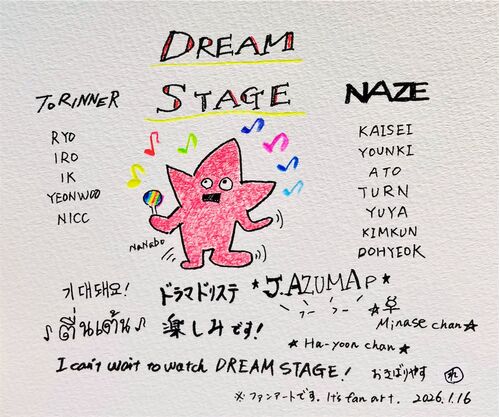 DREAM
STAGE
ToRINNER
RYO
IRO
IK
YEONWOO
NICC
NAZE
KAISEI
YOUNKI
ATO
TURN
YUYA
KIMKUN
DOHYEOK
NaNabo
기대돼요!
ตื่นเต้น
ドラマドリステ
楽しみです!
★J.AZUMAP★
Minase chan★
★Ha-yoon chan★
I can't wait to watch DREAM STAGE!
おきばりやす
※ファンアートです。It's fan art. 2026.1.16